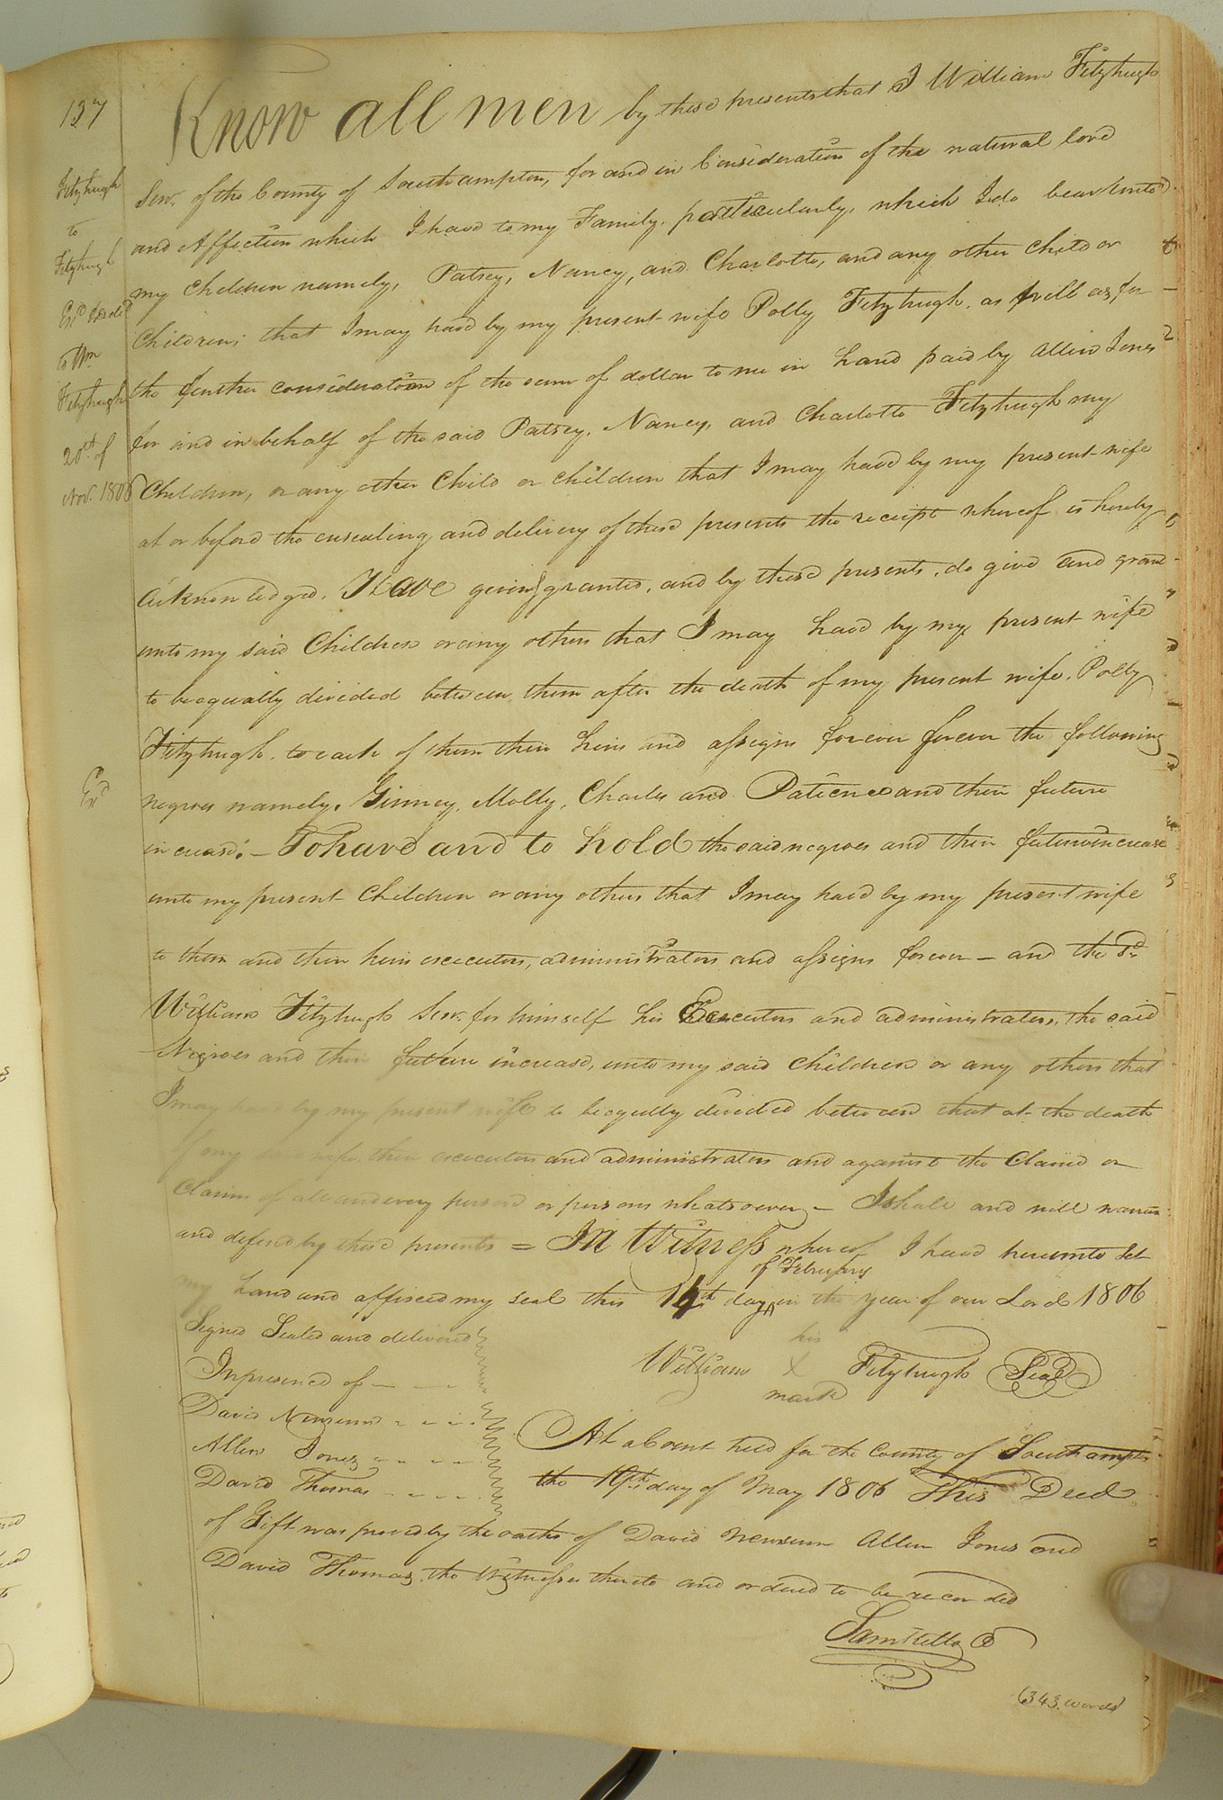 137
Fitzhugh
to
Fitzhugh
to Wm
Fitzhugh
20th of
Nov. 1806
Exd
Know all men by these presents that I William Fitzhugh
Senr. of the County of Southampton, for and in Consideration of the natural love
and Affection which I have to my Family, particularly, which I do bear unto
my Children namely, Patsey, Nancy, and Charlotte, and any other Child or
Children; that I may have by my present wife Polly Fitzhugh, as well as for
the further consideration of the sum of dollar to me in hand paid by Allen Jones
for and in behalf of the said Patsey, Nancy, and Charlotte Fitzhugh my
Children, or any other Child or children that I may have by my present wife
at or before the ensealing and delivery of these presents the receipt whereof is hereby
Acknowledged. Have given & granted, and by these presents, do give and grant
unto my said Children or any others that I may have by my present wife
to be equally divided between them after the death of my present wife, Polly
Fitzhugh, to each of them their heirs and assigns forever forever the following
negroes namely, Ginney, Molly, Charles and Patience and their future
increase. – To have and to hold the said negroes and their future increase
unto my present Children or any others that I may have by my present wife
to them and their heirs executors, administrators and assigns forever – and the sd.
William Fitzhugh Senr. for himself his Executors and administrators, the said
Negroes and their future increase, unto my said children or any others that
I may have by my present wife to be eqully divided between that at the death
of my said wife their executors and administrators and against the Claim or
Claims of all and every person or persons whatsoever, – I shall and will warran
and defend by these presents = In Witness whereof I have hereunto set
my hand and affixed my seal this 14th day of February in the year of our Lord 1806
Signed Sealed and delivered
In presence of – – –
David Newsum - - - -
Allen Jones - - - -
David Thomas - - - -
William his X mark Fitzhugh Seal
At a Court held for the County of Southampton
the 19th day of May 1806 This Deed
of Gift was proved by the oaths of David Newsum Allen Jones and
David Thomas, the Witnesses thereto and ordered to be recorded
Saml Kello
(343 words)